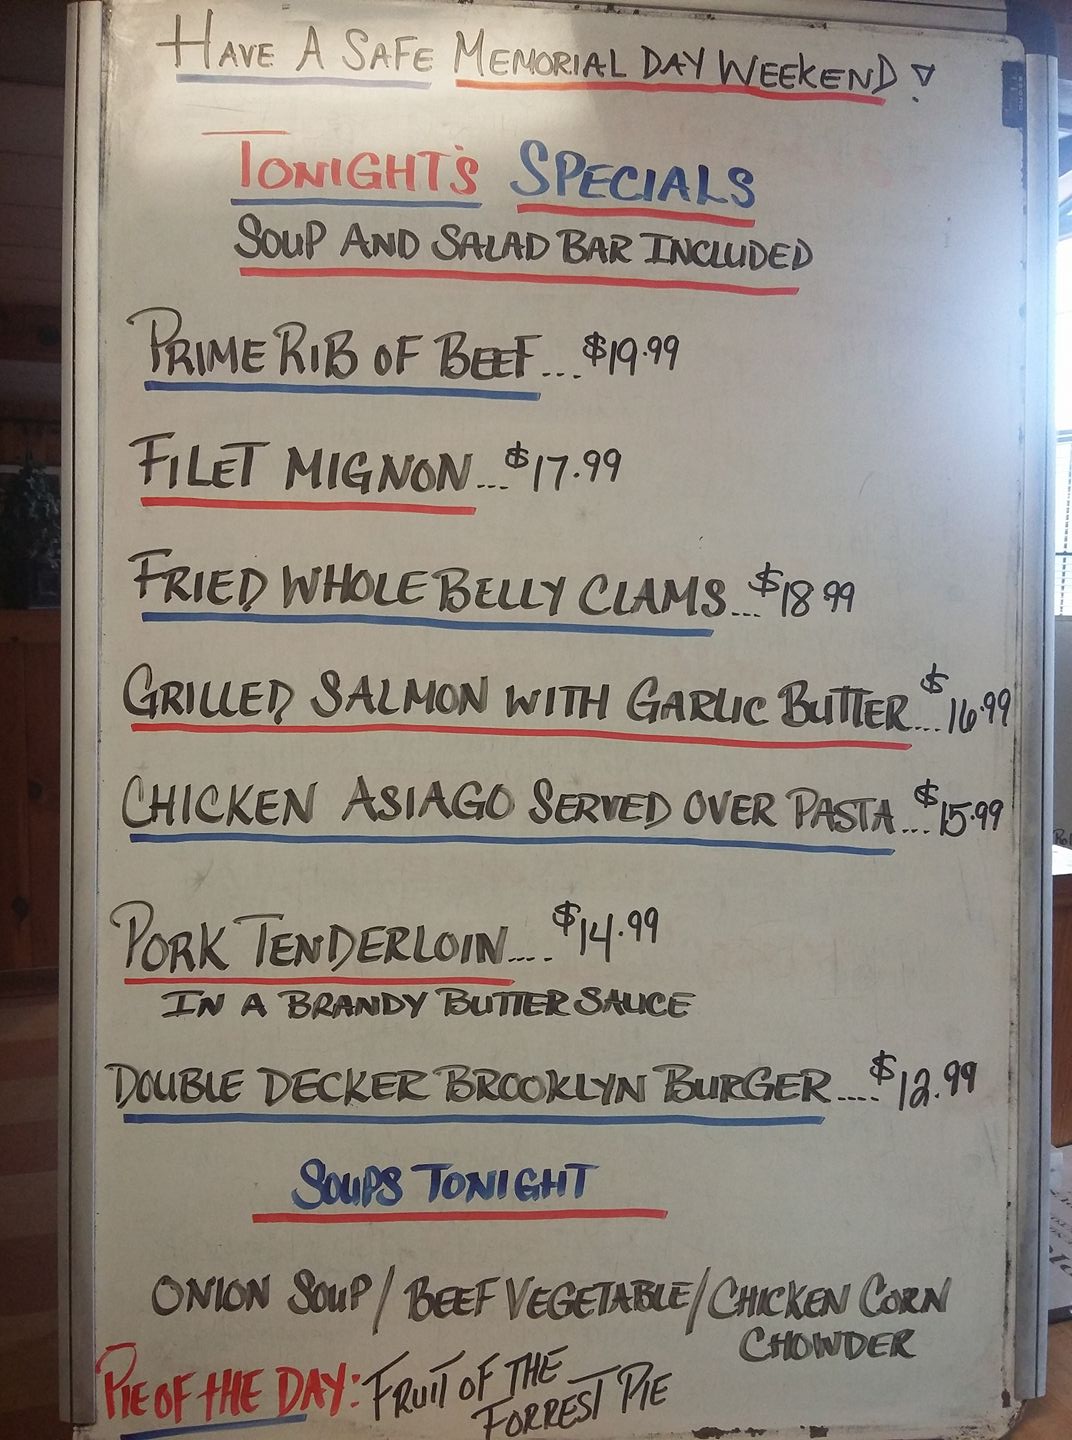 HAVE A SAFE MEMORIAL DAY WEEKEND!
TONIGHT'S SPECIALS
SOUP AND SALAD BAR INCLUDED
PRIME RIB OF BEEF...$19.99
FILET MIGNON...$17.99
FRIED WHOLE BELLY CLAMS...$18 99
GRILLED SALMON WITH GARLIC BUTTER...$16.99
CHICKEN ASIAGO SERVED OVER PASTA...$15.99
PORK TENDERLOIN....$14.99
IN A BRANDY BUTTER SAUCE
DOUBLE DECKER BROOKLYN BURGER....$12.99
SOUPS TONIGHT
ONION SOUP/BEEF VEGETABLE/CHICKEN CORN
CHOWDER
PIE OF THE DAY: FRUIT OF THE
FORREST PIE